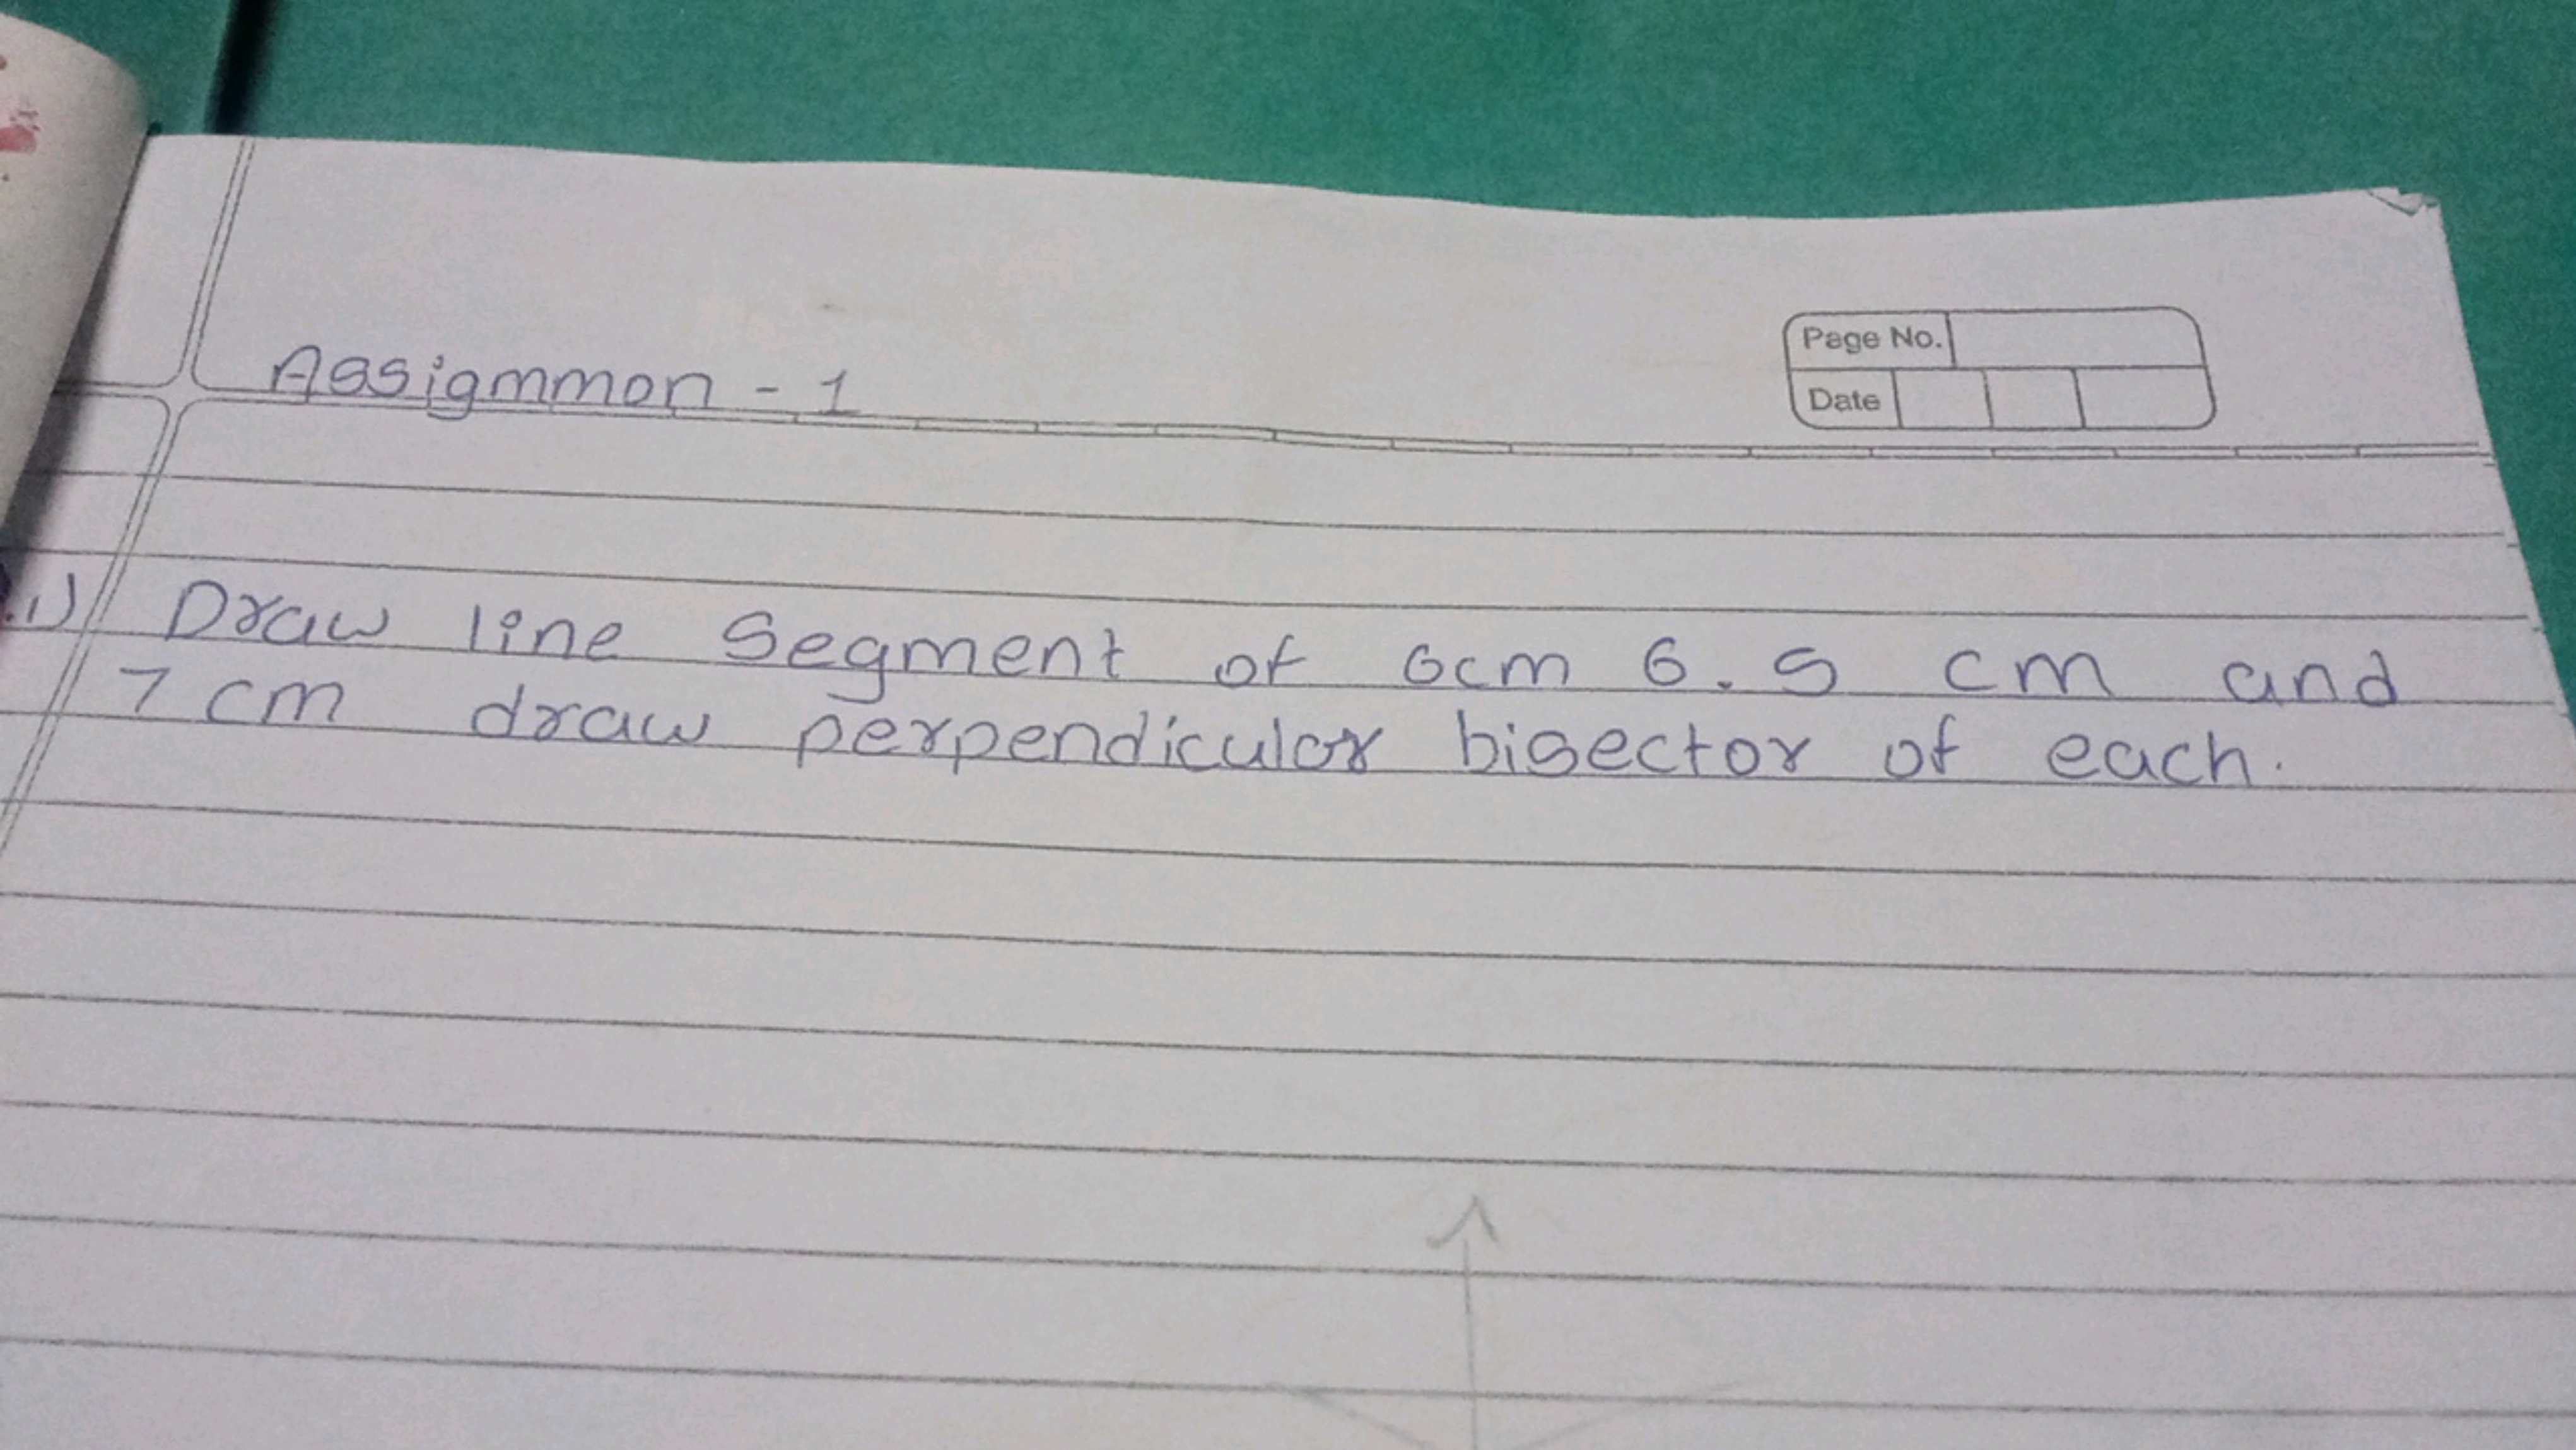 Assigmmon - 1
Page No.
Date
.1) Draw line Segment of 6cm 6.5 cm and
7 cm draw perpendiculor bisector of each.